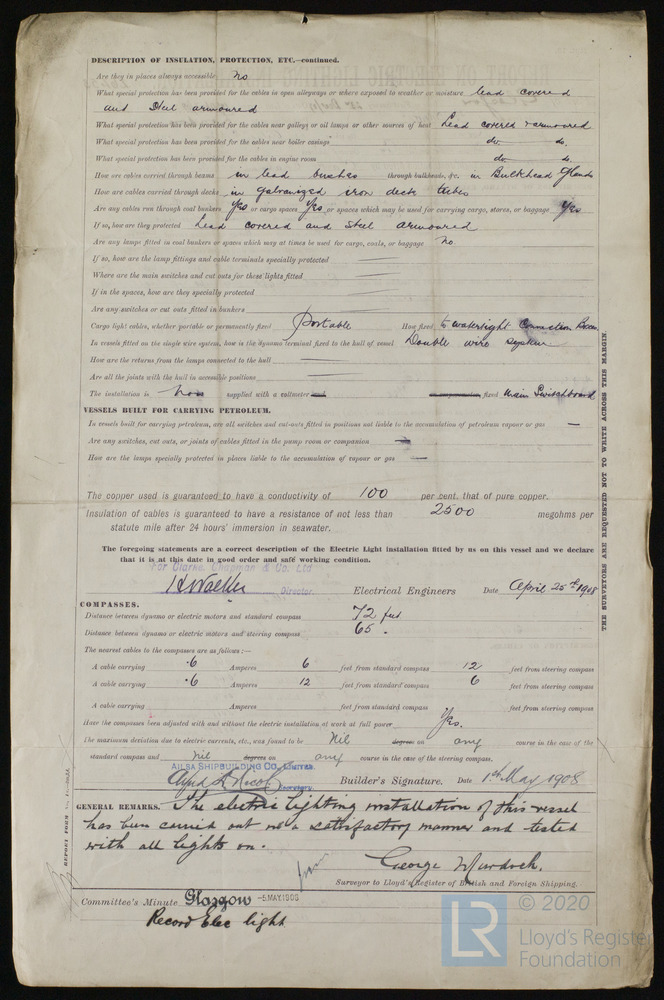 DESCRIPTION OF INSULATION, PROTECTION, ETC.—continued.
Are they in places always accessible No
What special protection has been provided for the cables in open alleyways or where exposed to weather or moisture lead covered
and Steel armoured
What special protection has been provided for the cables near galleys or oil lamps or other sources of heat Lead covered & armoured
What special protection has been provided for the cables near boiler casings do. do.
What special protection has been provided for the cables in engine room do. do.
How are cables carried through beams in lead bushes through bulkheads, &c. in Bulkhead Glands
How are cables carried through decks in galvanized iron deck tubes
Are any cables run through coal bunkers Yes or cargo spaces Yes or spaces which may be used for carrying cargo, stores, or baggage Yes
If so, how are they protected Lead covered and Steel armoured
Are any lamps fitted in coal bunkers or spaces which may at times be used for cargo, coals, or baggage No
If so, how are the lamp fittings and cable terminals specially protected
Where are the main switches and cut outs for these lights fitted
If in the spaces, how are they specially protected
Are any switches or cut outs fitted in bunkers
Cargo light cables, whether portable or permanently fixed Portable How fixed to watertight Connection Boxes
In vessels fitted on the single wire system, how is the dynamo terminal fixed to the hull of vessel Double wire system
How are the returns from the lamps connected to the hull
Are all the joints with the hull in accessible positions
The installation is supplied with a voltmeter fixed Main Switchboard
VESSELS BUILT FOR CARRYING PETROLEUM.
In vessels built for carrying petroleum, are all switches and cut-outs fitted in positions not liable to the accumulation of petroleum vapour or gas —
Are any switches, cut outs, or joints of cables fitted in the pump room or companion —
How are the lamps specially protected in places liable to the accumulation of vapour or gas —
The copper used is guaranteed to have a conductivity of 100 per cent. that of pure copper.
Insulation of cables is guaranteed to have a resistance of not less than 2500 megohms per
statute mile after 24 hours' immersion in seawater.
The foregoing statements are a correct description of the Electric Light installation fitted by us on this vessel and we declare
that it is at this date in good order and safe working condition.
For Clarke, Chapman & Co. Ltd
Director. Electrical Engineers Date April 25th 1908
COMPASSES.
Distance between dynamo or electric motors and standard compass 72 feet
Distance between dynamo or electric motors and steering compass 65 "
The nearest cables to the compasses are as follows:—
A cable carrying .6 Amperes 6 feet from standard compass 12 feet from steering compass
A cable carrying .6 Amperes 12 feet from standard compass 6 feet from steering compass
A cable carrying Amperes feet from standard compass feet from steering compass
Have the compasses been adjusted with and without the electric installation at work at full power Yes.
The maximum deviation due to electric currents, etc., was found to be Nil degrees on any course in the case of the
standard compass and nil degrees on any course in the case of the steering compass.
AILSA SHIPBUILDING CO., LIMITED.
Secretary. Builder's Signature. Date 1st May 1908
GENERAL REMARKS. The electric lighting installation of this vessel
has been carried out in a satisfactory manner and tested
with all lights on.
George Murdoch.
Surveyor to Lloyd's Register of British and Foreign Shipping.
Committee's Minute Glasgow -5 MAY 1908
Record Elec light
THE SURVEYORS ARE REQUESTED NOT TO WRITE ACROSS THIS MARGIN.
REPORT FORM No.
LR
© 2020
Lloyd's Register
Foundation